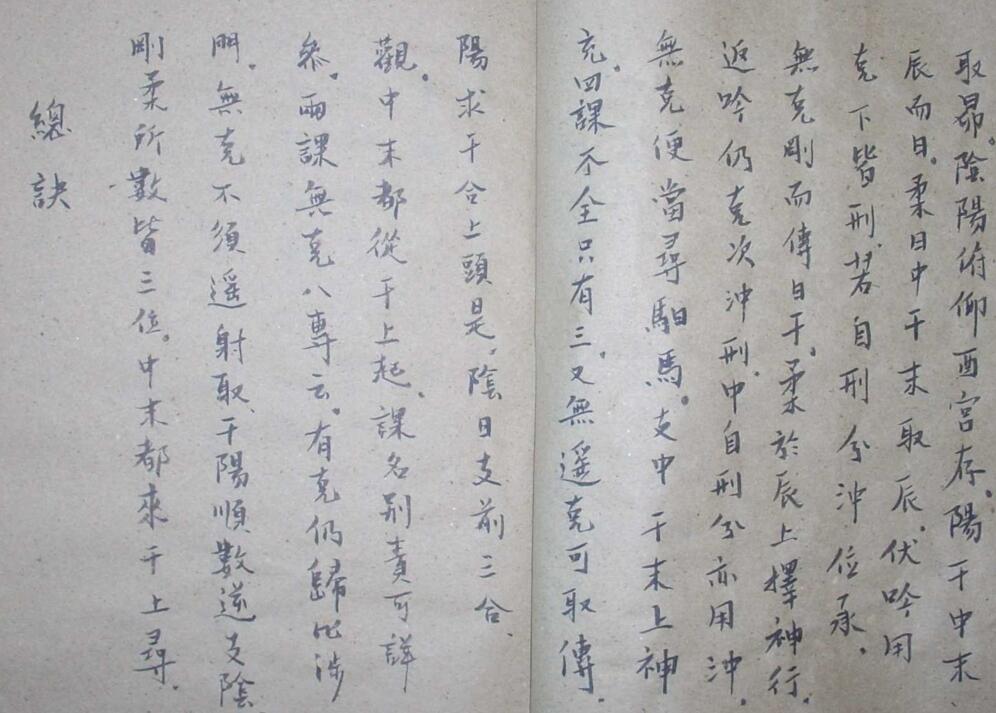 取昴。陰陽俯仰酉宮存。陽干中末
辰而日。柔日中干末取辰。伏吟用
克下皆刑。若自刑兮沖位承。
無克剛而傳日干。柔於辰上擇神行。
返吟仍克次沖刑。中自刑兮亦用沖。
無克便當尋馹馬。支中干末上神
充。四課不全只有三。又無遥克可取傳。
陽求干合上頭是。陰日支前三合、
觀。中末都從干上起。課名别責可詳
叅。兩課無克八專云。有克仍歸比涉
門。無克不須遥射取、干陽順數逆支陰
剛柔所數皆三位。中末都來干上尋。
總訣